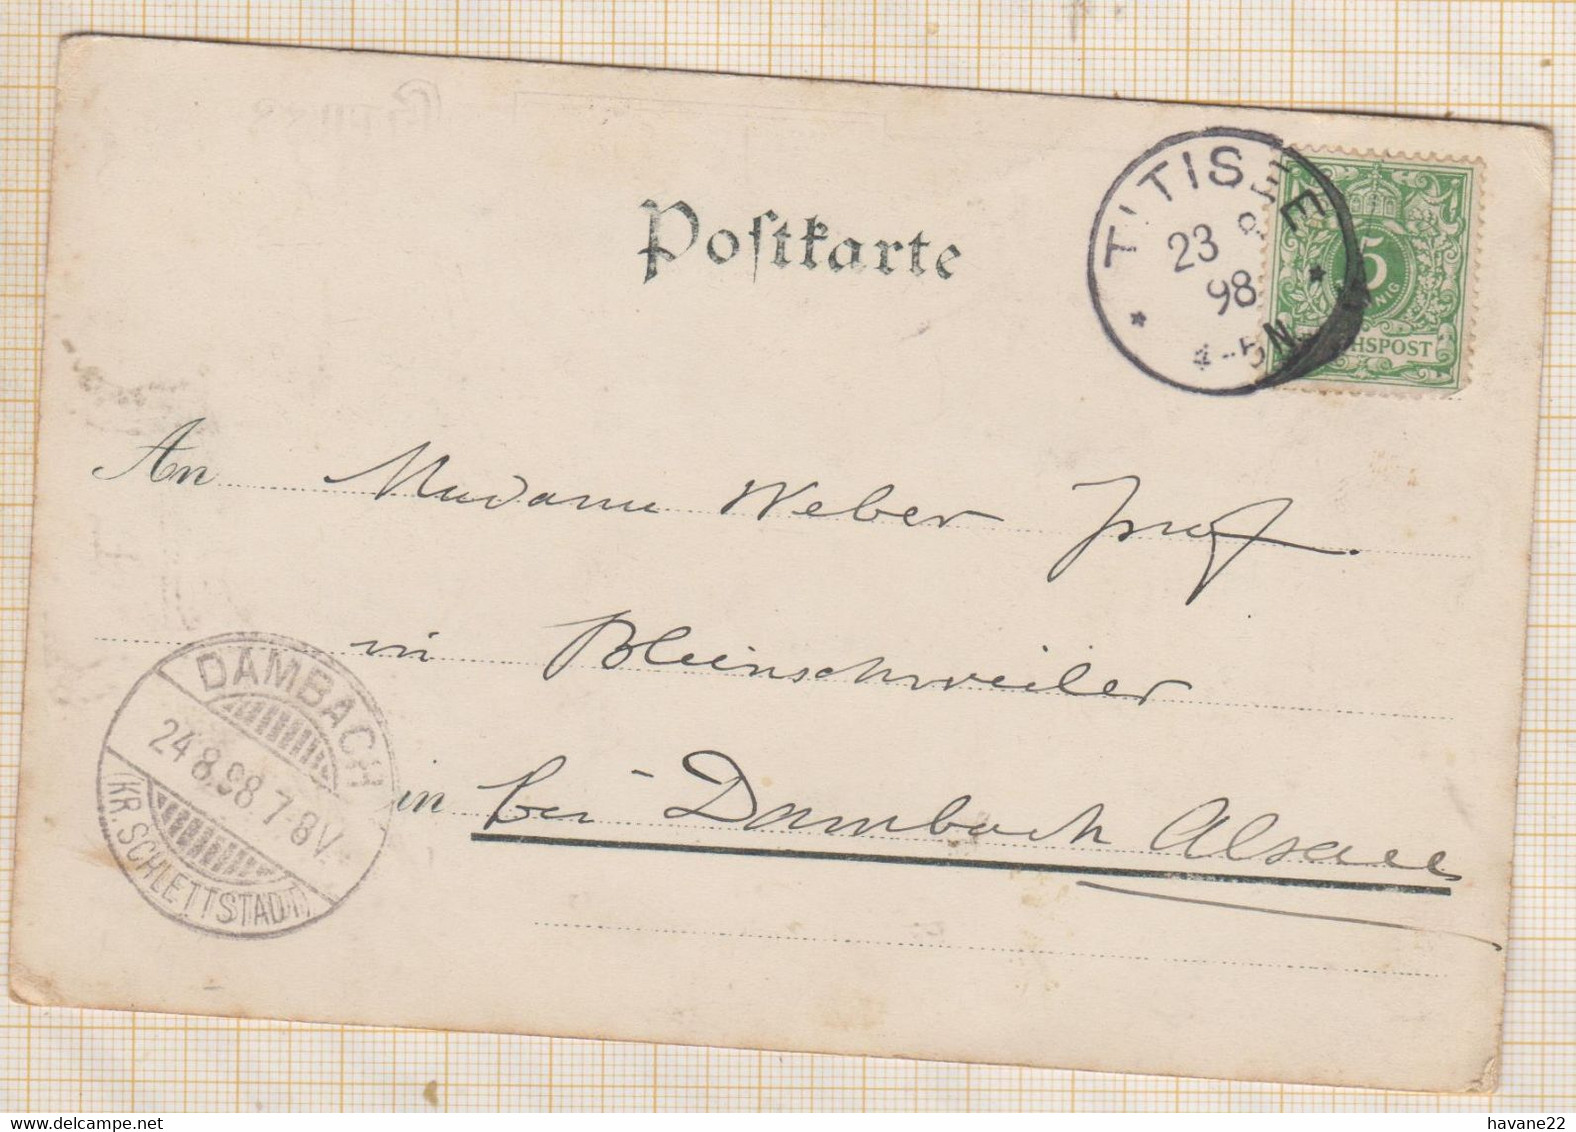 Postkarte
TITISEE
23 8
98
4-5N
5
PFENNIG
REICHSPOST
An Madame Weber Josef
in Bleinschweiler
in bei Dambach Alsace
DAMBACH
24.8.98.7-8V.
(KR. SCHLETTSTADT)
havane22